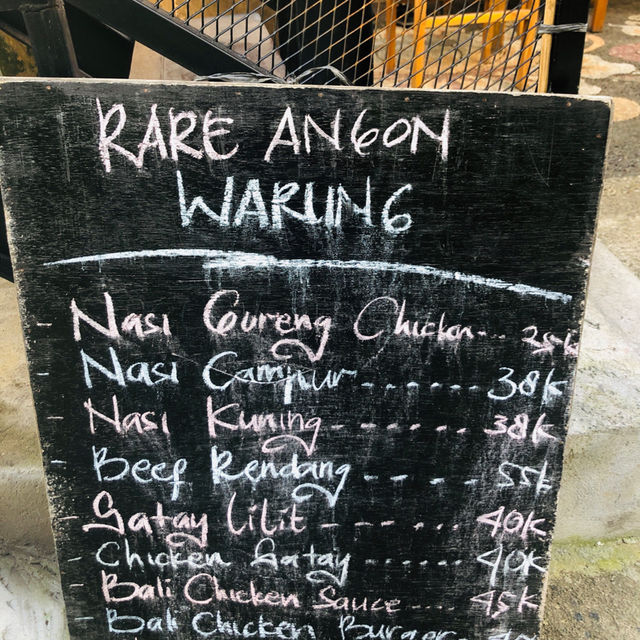 RARE ANGON
WARUNG
- Nasi Goreng Chicken... 35k
- Nasi Campur....... 38k
- Nasi Kuning------- 38k
- Beef Rendang - - - ... 55k
- Satay Lilit - - - .... 40k
- Chicken Satay ...... 40k
- Bali Chicken Sauce.... 45k
- Bali Chicken Burger